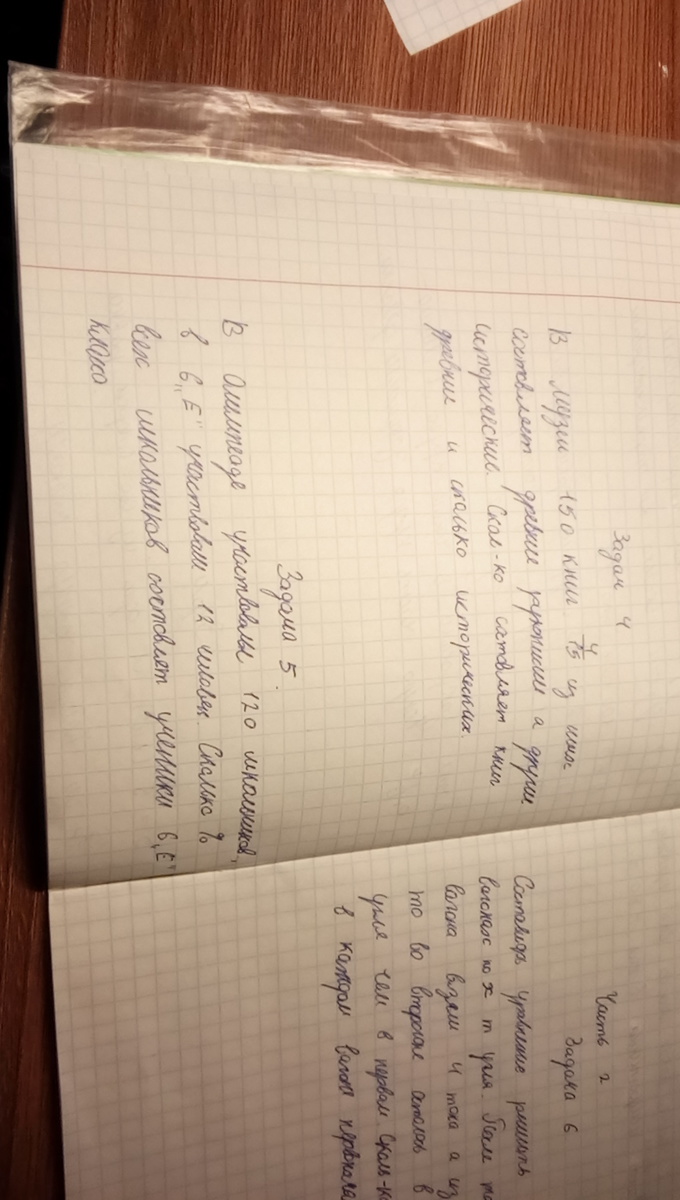 Задач 4
В музеи 150 книг. 4/15 из них
составляет древние рукописи а другие
исторические. Скол-ко составляет книг
древние и сколько исторических.
Задача 5.
В Олимпеаде участвовали 120 школьников,
в 6 „Е" участвовали 12 человек. Сколько %
всех школьников составлят ученики 6 „Е"
класса
Часть 2
Задача 6
Составидь уравнение решить
вагонах по x т угля. После
вагона взяли 4 тона а из
то во втором осталось в
угля чем в первом Сколь-к
в каждом вагоне первонача